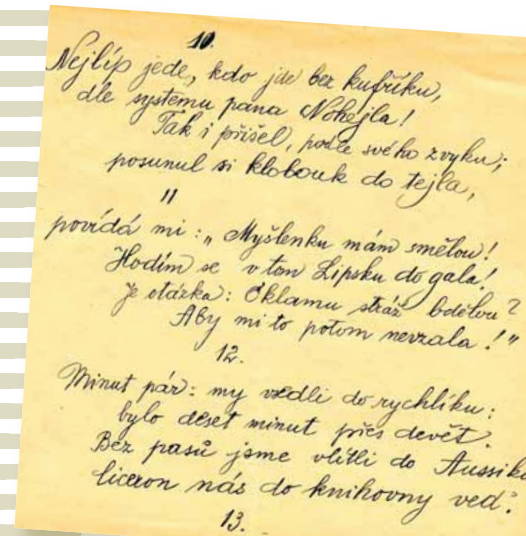 10.
Nejlíp jede, kdo jde bez kufříku,
dle systému pana Nohejla!
Tak i přišel, podle svého zvyku;
posunul si klobouk do tejla,
11
povídá mi: „Myšlenku mám smělou!
Hodím se v tom Lipsku do gala!
Je otázka: Oklamu stráž bdělou?
Aby mi to potom nevzala!"
12.
Minut pár: my vsedli do rychlíku:
bylo deset minut přes devět.
Bez pasů jsme vlítli do Aussiku
liceron nás do knihovny ved.
13.